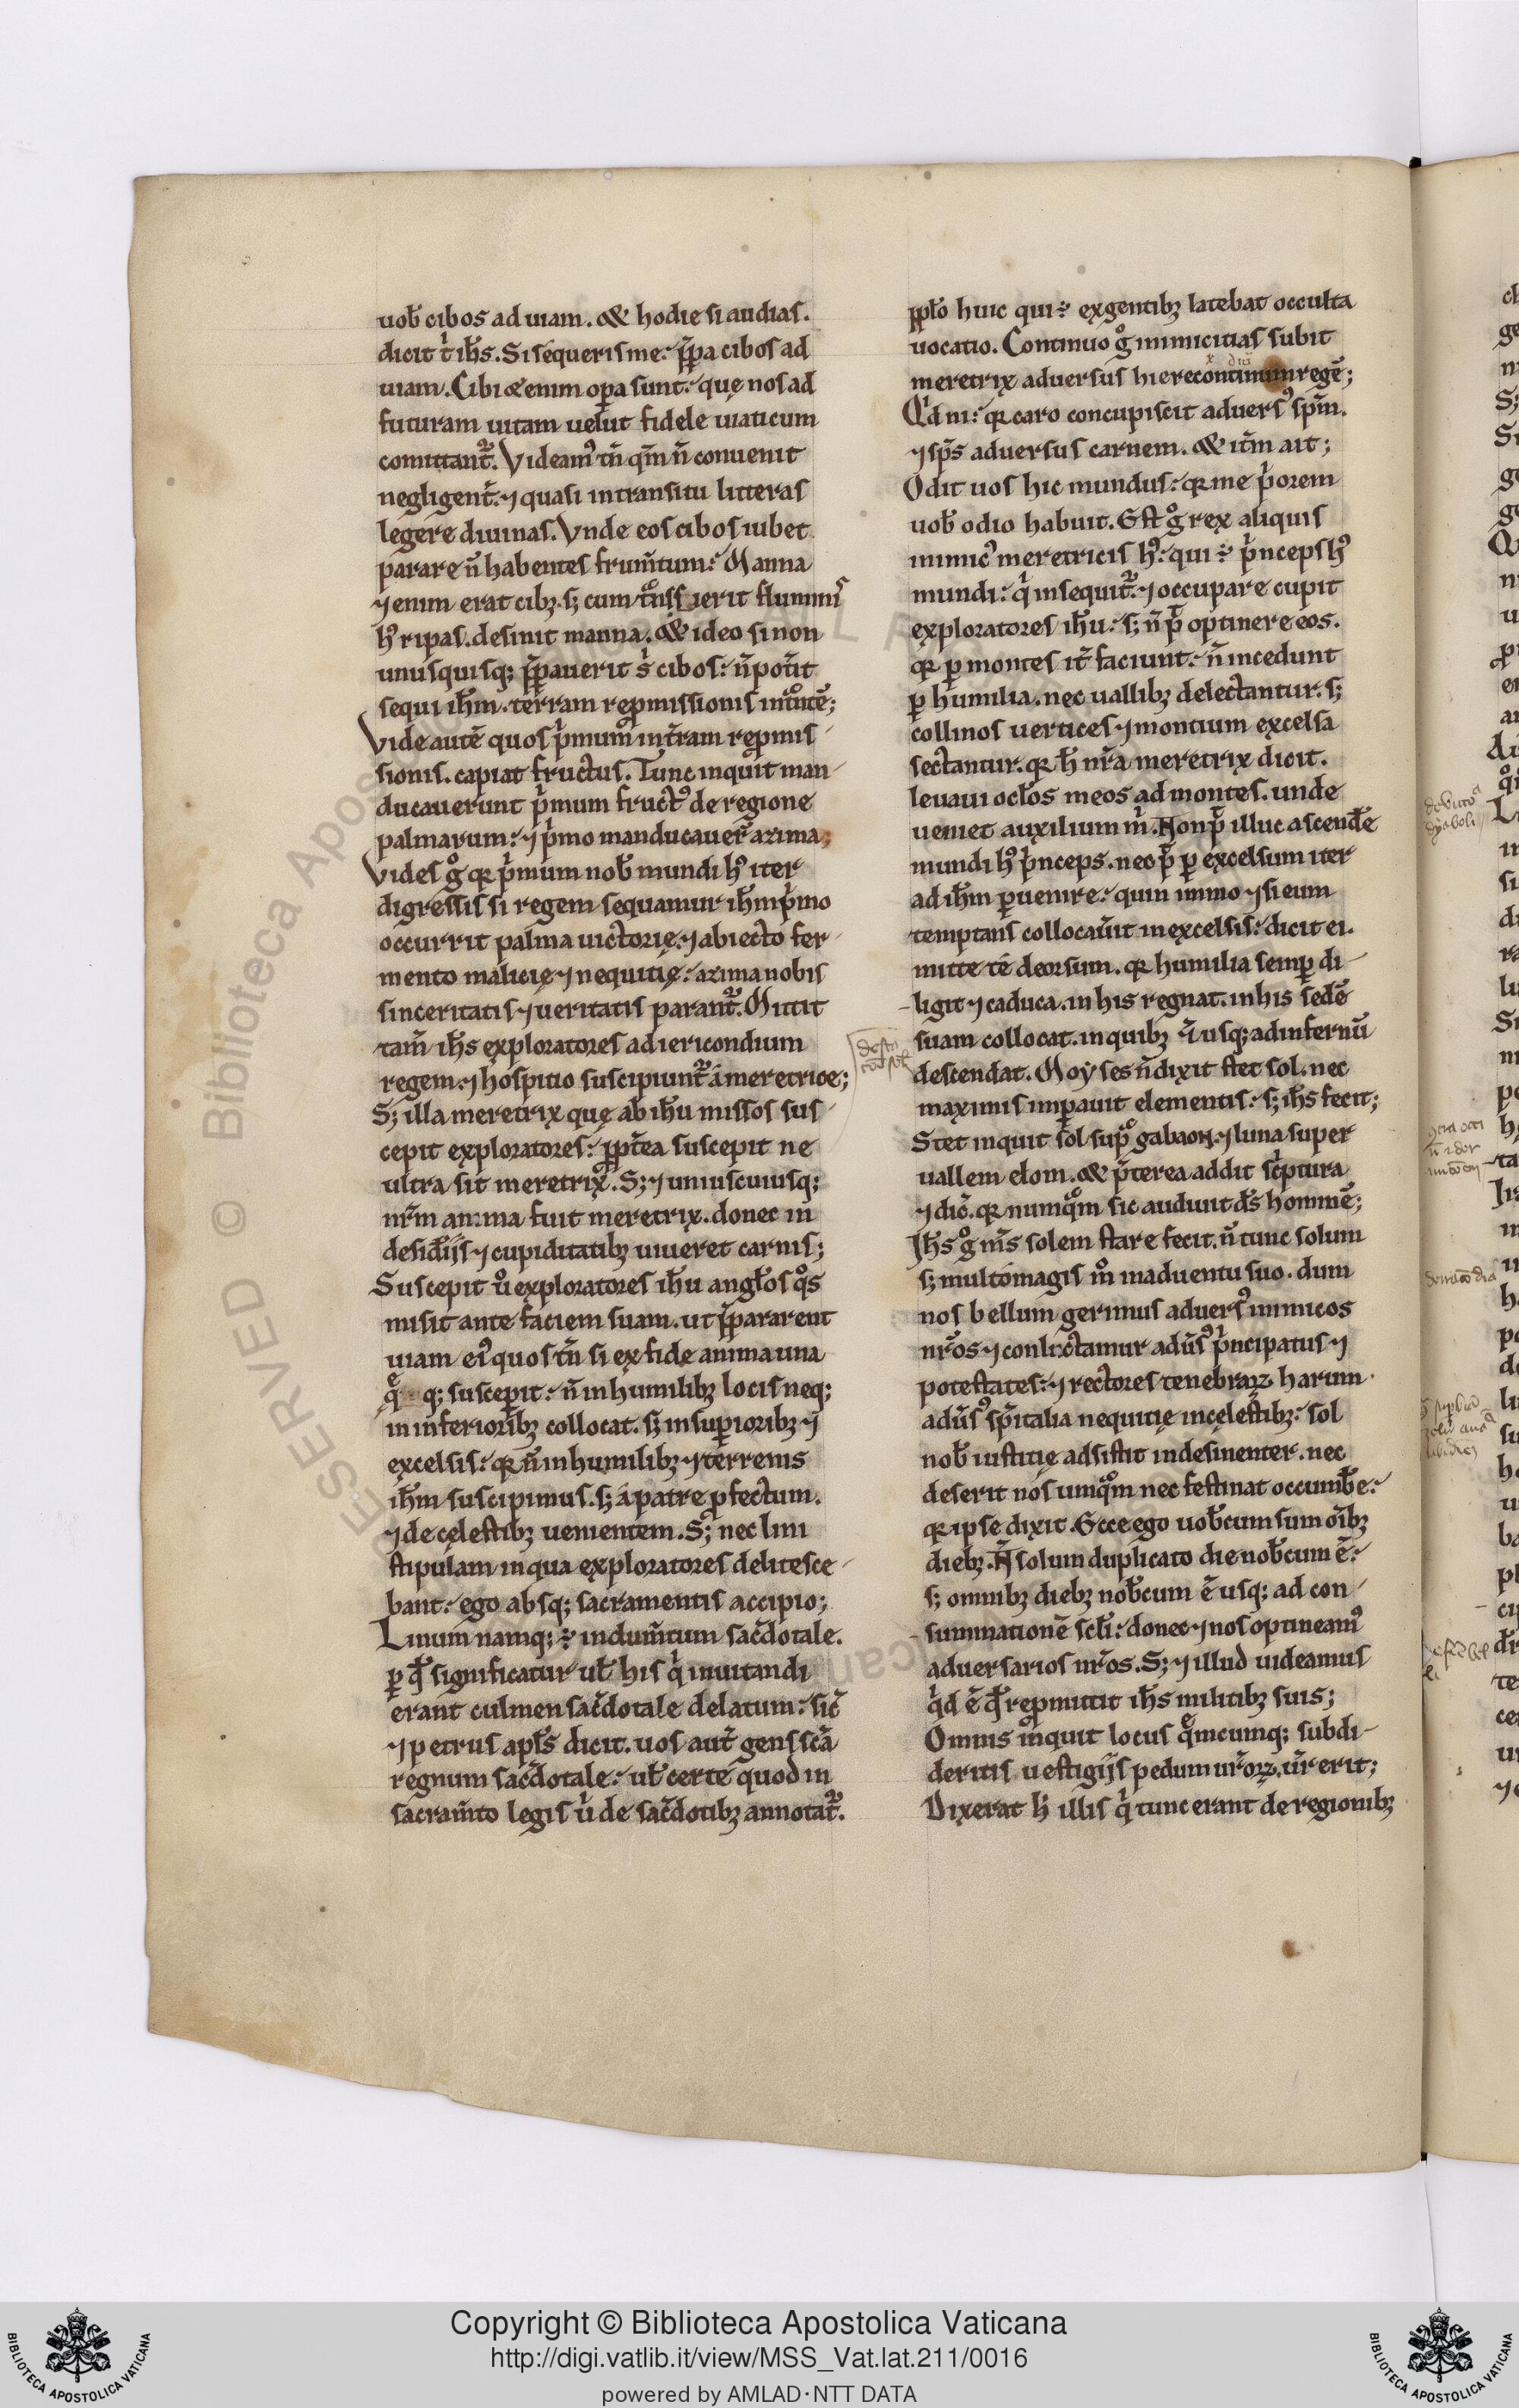 uob̄ cibos ad uiam. & hodie si audias.
dicit t͛ ih̄s. Si sequeris me: p̄pa cibos ad
uiam. Cibi & enim opa sunt: quę nos ad
futuram uitam uelut fidele uiaticum
comittant᷑. Videam᷒ tn̄ qm̄ n̄ conuenit
negligent͛. ⁊ quasi in transitu litteras
legere diuinas. Vnde eos cibos iubet
parare n̄ habentes frum̄tum: Manna
⁊ enim erat cibꝫ. sꝫ cum t͛nssierit fluminis
h᷒ ripas. desinit manna. & ideo si non
unusquisqꝫ p̄pauerit s᷒ cibos: n̄ pot͛it
sequi ih̄m. terram repmissionis int͛ntē;
Vide autē quos p͛mum in t͛ram repmis-
sionis. capiat fructus. Tunc inquit man-
ducauerunt p͛mum fruct᷒ de regione
palmarum: ⁊ p͛mo manducauer̄ azima;
Vides gͦ qꝛ p͛mum nob̄ mundi h᷒ iter
digressis si regem sequamur ih̄m p͛mo
occurrit palma uictorię. ⁊ abiecto fer-
mento malicię ⁊ nequitię: azima nobis
sinceritatis ⁊ ueritatis parant᷑. Mittit
tam̄ ih̄s exploratores ad iericondium
regem. ⁊ hospitio suscipiunt᷑ á meretrice;
Sꝫ illa meretrix quę ab ih̄u missos sus-
cepit exploratores: ppt͛ea suscepit ne
ultra sit meretrix. Sꝫ ⁊ uniuscuiusqꝫ
nr̄m anima fuit meretrix. donec in
desid͛iis ⁊ cupiditatibꝫ uiueret carnis;
Suscepit uͦ exploratores ih̄u angl̄os qͦs
misit ante faciem suam. ut p̄pararent
uiam ei᷒ quos tn̄ si ex fide anima una
qꝫ suscepit: n̄ in humilibꝫ locis neqꝫ
in inferioribꝫ collocat. sꝫ in superioribꝫ ⁊
excelsis: qꝛ n̄ in humilibꝫ ⁊ terrenis
ih̄m suscipimus. sꝫ á patre pfectum.
⁊ de cęlestibꝫ uenientem. Sꝫ nec lini
stipulam in qua exploratores delitesce-
bant: ego absqꝫ sacramentis accipio;
Linum namqꝫ ÷ indum̄tum sac͛dotale.
p qd̄ significatur ut̄ his q͛ inuitandi
erant culmen sac͛dotale delatum: sic̄
⁊ petrus apl̄s dicit. uos aut̄ gens sc̄a
regnum sac͛dotale: ut̄ certe quod in
sacram̄to legis u͛ de sac͛dotibꝫ annotat᷑.
ppl̄o huic qui ÷ ex gentibꝫ latebat occulta
uocatio. Continuo gͦ inimicitias subit
meretrix aduersus hierecontinum regē;
Qd̄ ni: qꝛ caro concupiscit aduers᷒ sp̄m.
⁊ sp̄s aduersus carnem. & it̄m ait;
Odit uos hic mundus: qꝛ me p͛orem
uob̄ odio habuit. Est gͦ rex aliquis
inimic᷒ meretricis h᷒: qui ÷ p͛nceps h᷒
mundi: q͛ insequit᷑. ⁊ occupare cupit
exploratores ih̄u: sꝫ n̄ pͭ optinere eos.
qꝛ p montes it͛ faciunt: n̄ incedunt
p humilia. nec uallibꝫ delectantur. sꝫ
collinos uertices ⁊ montium excelsa
sectantur. qꝛ h̄ nr̄a meretrix dicit.
leuaui ocl̄os meos ad montes. unde
ueniet auxilium m͛. Non pͭ illuc ascend͛e
mundi h᷒ p͛nceps. nec pͭ p excelsum iter
ad ih̄m puenire: quin immo ⁊ si eum
temptans collocau͛it in excelsis: dicit ei.
mitte te deorsum. qꝛ humilia semp di-
ligit ⁊ caduca. in his regnat. in his sedē
suam collocat. in quibꝫ ÷ usqꝫ ad infernū
descendat. Moẏses n̄ dixit stet sol. nec
maximis impauit elementis: sꝫ ih̄s fecit;
Stet inquit sol supͦ gabaon. ⁊ luna super
uallem elom. & p̄terea addit sc͛ptura
⁊ dic̄. qꝛ numqͦm sic audiuit d̄s hominē;
Ih̄s gͦ nr̄s solem stare fecit. n̄ tunc solum
sꝫ multómagis mͦ in aduentu suo. dum
nos bellum gerimus aduers᷒ inimicos
nr̄os ⁊ conluctamur adūs᷒ p͛ncipatus ⁊
potestates: ⁊ rectores tenebraꝝ harum
adūs᷒ sp͛italia nequitię in cęlestibꝫ: sol
nob̄ iustitię adsistit indesinenter. nec
deserit nos umqͦm nec festinat occumb͛e:
qꝛ ipse dixit. Ecce ego uob̄cum sum oībꝫ
diebꝫ. N̄ solum duplicato die nob̄cum ē:
sꝫ omnibꝫ diebꝫ nob̄cum ē usqꝫ ad con-
summationē scl̄i: donec ⁊ nos optineam᷒
aduersarios nr̄os. Sꝫ ⁊ illud uideamus
q͛d ē qd̄ repmittit ih̄s militibꝫ suis;
Omnis inquit locus qͣmcumqꝫ subdi-
deritis uestigiis pedum ur̄oꝝ. ur̄ erit;
Dixerat h̄ illis q͛ tunc erant de regionibꝫ
Copyright © Biblioteca Apostolica Vaticana
http://digi.vatlib.it/view/MSS_Vat.lat.211/0016
powered by AMLAD·NTT DATA